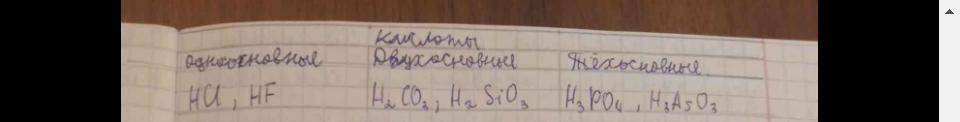 кислоты
одноосновные Двухосновные трёхосновные
HCl, HF H₂CO₃, H₂SiO₃ H₃PO₄, H₃AsO₃